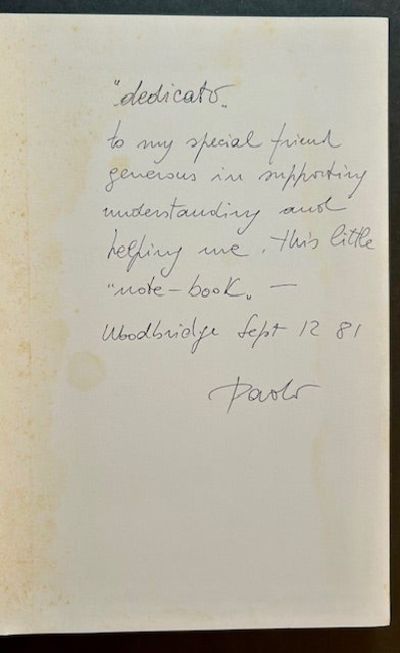 "dedicato"
to my special friend
generous in supporting
understanding and
helping me. This little
"note-book" —
Woodbridge Sept 12 81
Paolo